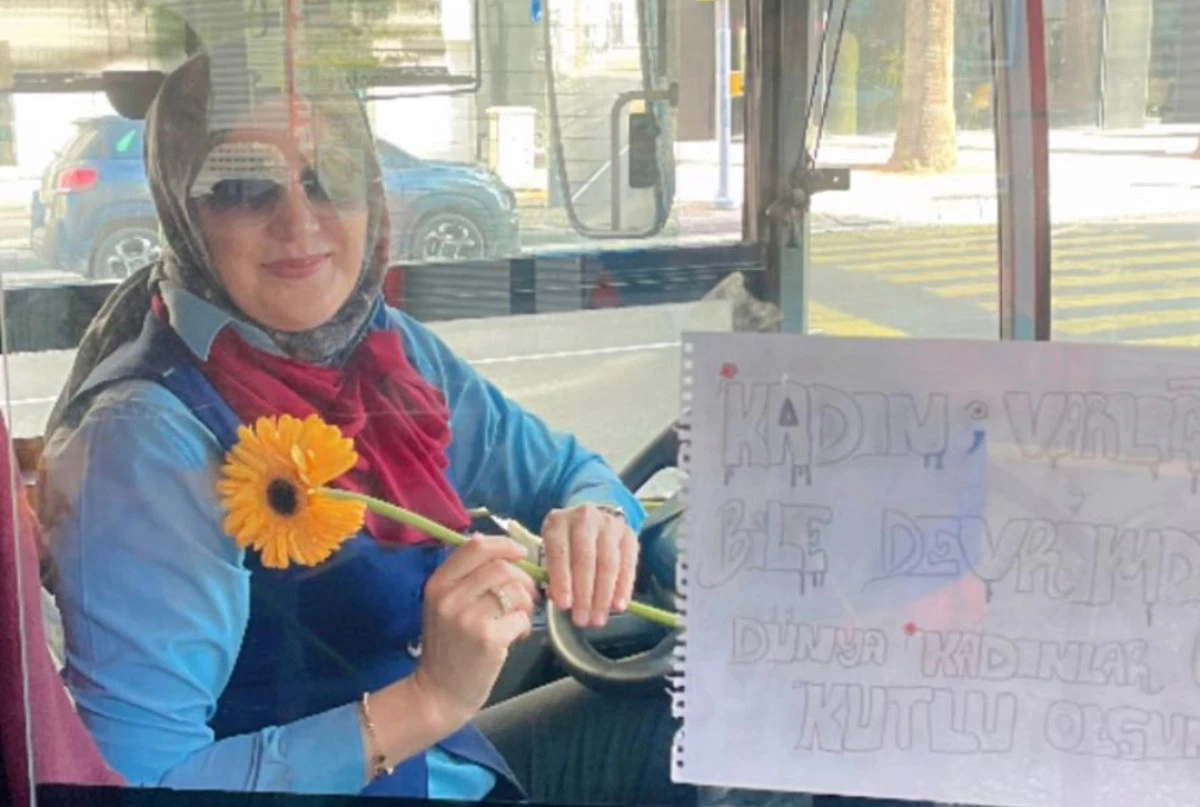 KADIN VARLĞ
BİLE DEVRİMD
DÜNYA KADINLAR G
KUTLU OLSU